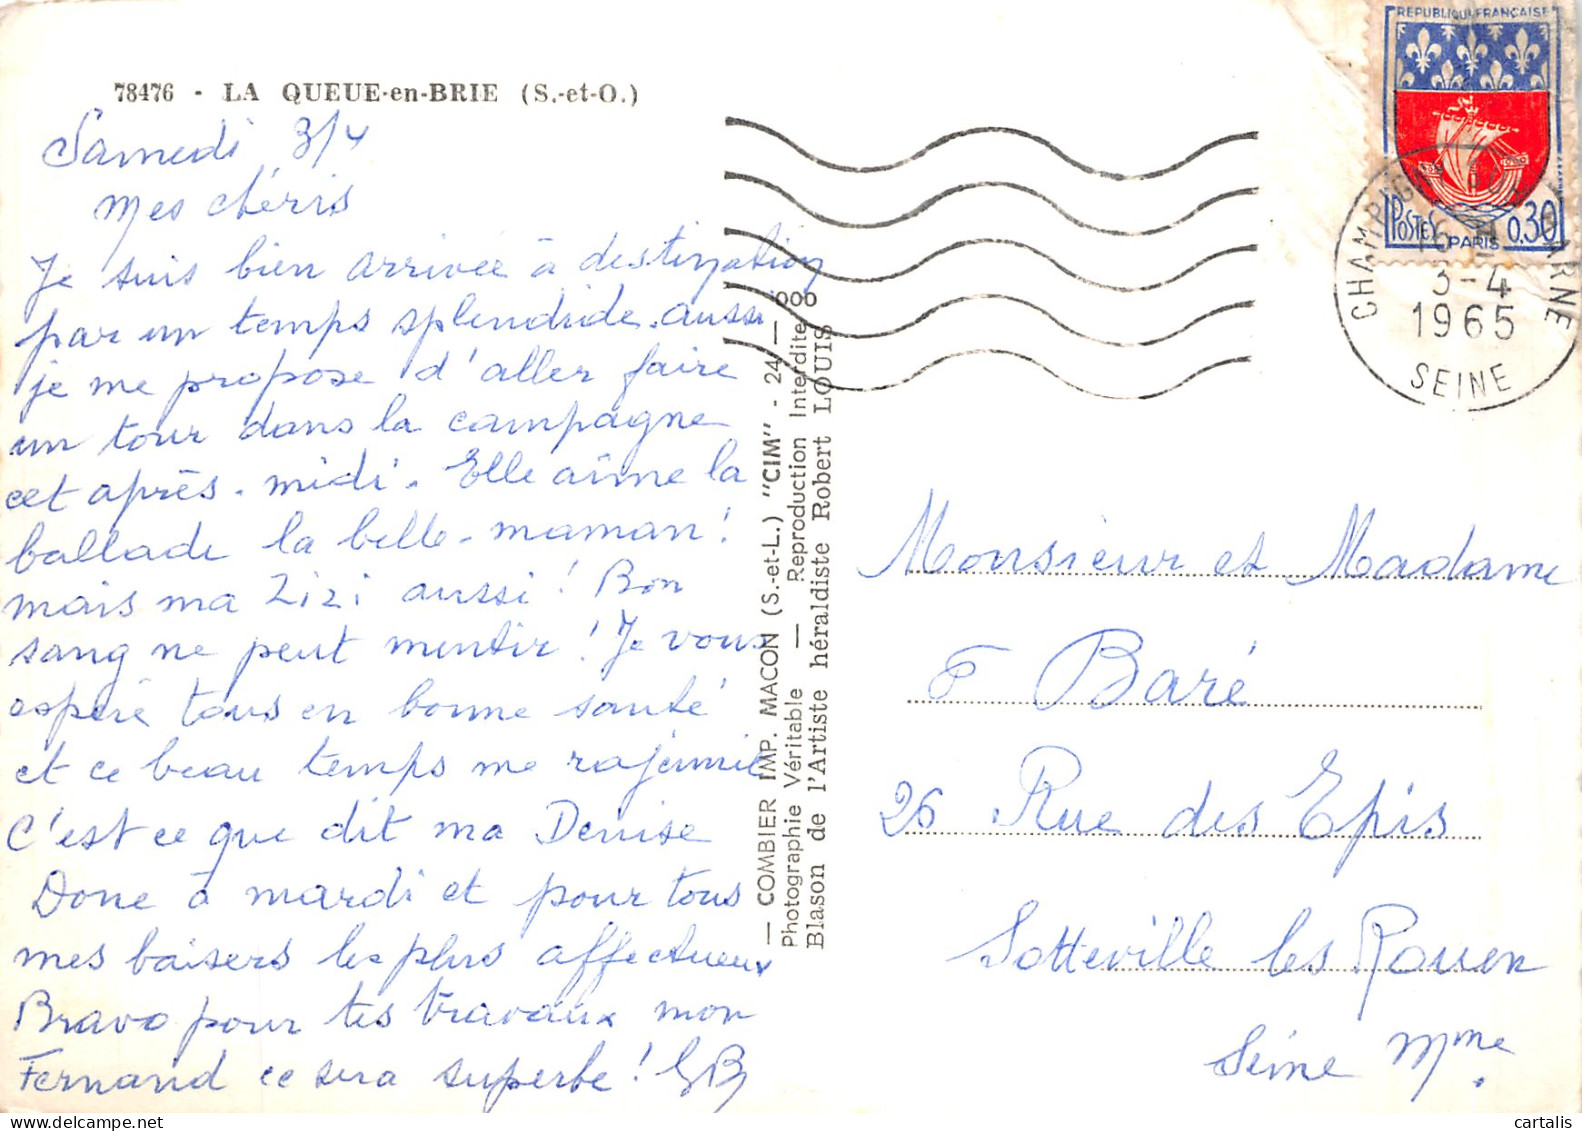 78476 - LA QUEUE-en-BRIE (S.-et-O.)
Samedi 3/4
Mes chéris
Je suis bien arrivée à destination
par un temps splendide. aussi
je me propose d'aller faire
un tour dans la campagne
cet après-midi. Elle aime la
ballade la belle-maman!
mais ma Zizi aussi! Bon
sang ne peut mentir! Je vous
espère tous en bonne santé
et ce beau temps me rajeunit
C'est ce que dit ma Denise
Donc à mardi et pour tous
mes baisers les plus affectueux
Bravo pour tes travaux mon
Fernand ce sera superbe! GB
— COMBIER IMP. MACON (S.-et-L.) "CIM" - 24 — 000
Photographie Véritable — Reproduction Interdite
Blason de l'Artiste héraldiste Robert LOUIS
REPUBLIQUE FRANÇAISE
POSTES PARIS 0,30
3-4
1965
SEINE
Monsieur et Madame
F Baré
26 Rue des Epis
Sotteville les Rouen
Seine Mme.
cartalis